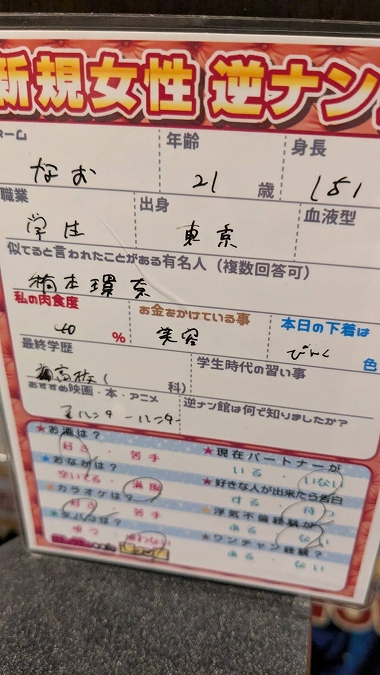 新規女性 逆ナン
ーム 年齢 身長
なお 21 歳 151
職業 出身 血液型
学生 東京
似てると言われたことがある有名人(複数回答可)
橋本環奈
私の肉食度 お金をかけている事 本日の下着は
40 % 美容 ぴんく 色
最終学歴 学生時代の習い事
科)
おすすめ映画・本・アニメ 逆ナン館は何で知りましたか?
★お酒は? ★現在パートナーが
好き・苦手 いる・いない
★おなかは? ★好きな人が出来たら告白
空いてる・満腹 する・待つ
★カラオケは? ★浮気不倫経験が
好き・苦手 ある・ない
★タバコは? ★ワンチャン経験?
吸う・吸わない ある・ない